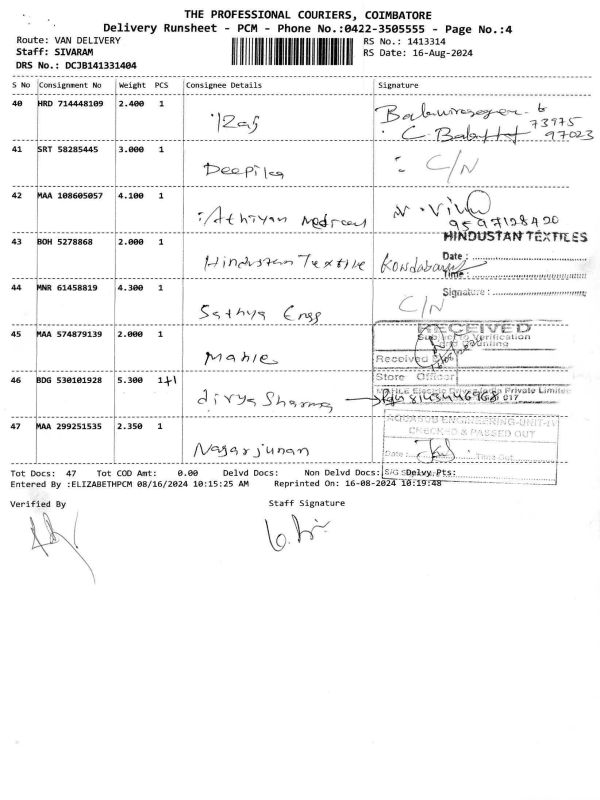 THE PROFESSIONAL COURIERS, COIMBATORE
Delivery Runsheet - PCM - Phone No.:0422-3505555 - Page No.:4
Route: VAN DELIVERY RS No.: 1413314
Staff: SIVARAM RS Date: 16-Aug-2024
DRS No.: DCJB141331404
S No Consignment No Weight PCS Consignee Details Signature
40 HRD 714448109 2.400 1
73975
C. 97023
41 SRT 58285445 3.000 1 Deepika C/N
42 MAA 108605057 4.100 1 Athiyan Medical
9597128420
HINDUSTAN TEXTILES
43 BOH 5278868 2.000 1 Hindustan Textile
Date :
Time :
44 MNR 61458819 4.300 1 Sathya Engg C/N
Signature :
RECEIVED
Subject to Verification
and Counting
45 MAA 574879139 2.000 1 Mahle
Received
Store Officer
46 BDG 530101928 5.300 1+1 divya Sharma
Private Limited
ENGINEERING-UNIT-IV
CHECKED & PASSED OUT
47 MAA 299251535 2.350 1 Nagarjunan
Date : Time Out
Tot Docs: 47 Tot COD Amt: 0.00 Delvd Docs: Non Delvd Docs: Delvy Pts:
Entered By :ELIZABETHPCM 08/16/2024 10:15:25 AM Reprinted On: 16-08-2024 10:19:48
Verified By Staff Signature